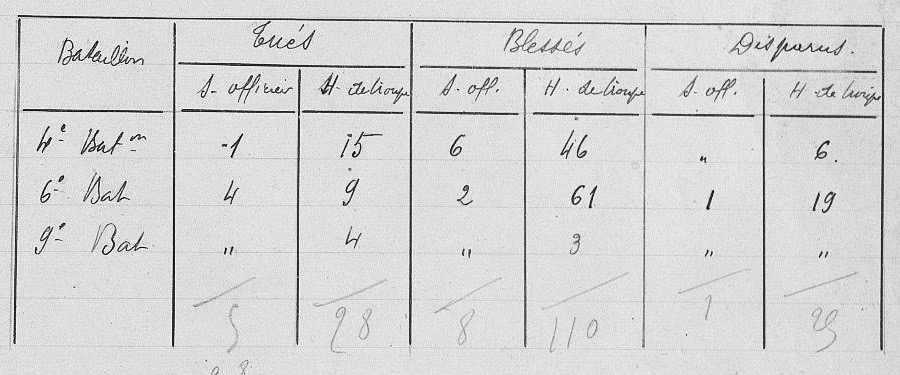 Bataillon Tués Blessés Disparus.
S- officier H- de troupe S- off. H. de troupe S- off. H de troupe
4e Baton -1 15 6 46 " 6.
6e Bat 4 9 2 61 1 19
9e Bat " 4 " 3 " "
5 28 8 110 1 25